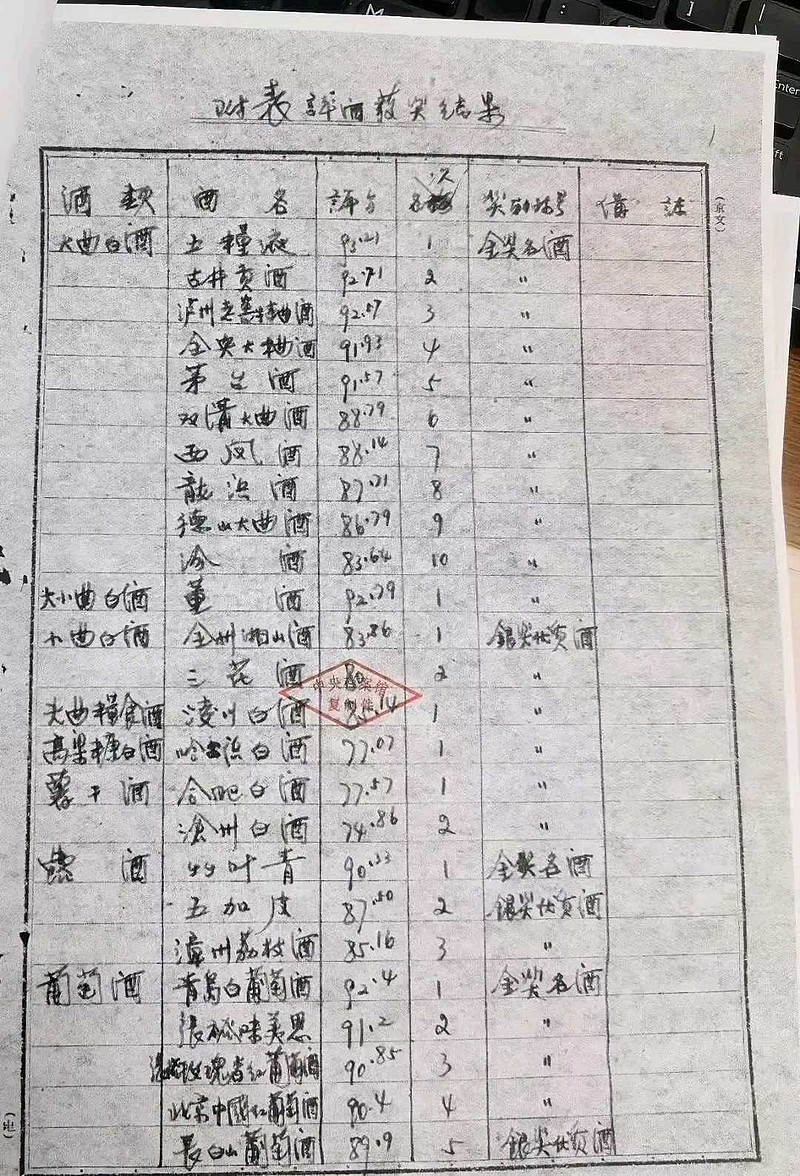 附表 評酒获奖结果
酒類 酒名 評分 名次 奖别称号 備註
大曲白酒 五糧液 93.21 1 金奖名酒
古井贡酒 92.71 2 〃
泸州老窖特曲酒 92.57 3 〃
全兴大曲酒 91.93 4 〃
茅台酒 91.57 5 〃
双溝大曲酒 88.79 6 〃
西凤酒 88.14 7 〃
龍浜酒 87.71 8 〃
德山大曲酒 86.79 9 〃
汾酒 83.64 10 〃
大小曲白酒 董酒 92.79 1 〃
小曲白酒 全州湘山酒 83.86 1 銀奖优质酒
三花酒 2 〃
中央档案馆
复制件
夫曲糧食酒 凌川白酒 1 〃
高粱糠白酒 哈尔滨白酒 77.07 1 〃
薯干酒 合肥白酒 77.57 1 〃
滄州白酒 74.86 2 〃
露酒 竹叶青 90.33 1 金奖名酒
五加皮 87.50 2 銀奖优质酒
漳州荔枝酒 85.16 3 〃
葡萄酒 青島白葡萄酒 92.4 1 金奖名酒
張裕味美思 91.2 2 〃
玫瑰香红葡萄酒 90.85 3 〃
北京中國红葡萄酒 90.4 4 〃
長白山葡萄酒 89.9 5 銀奖优质酒